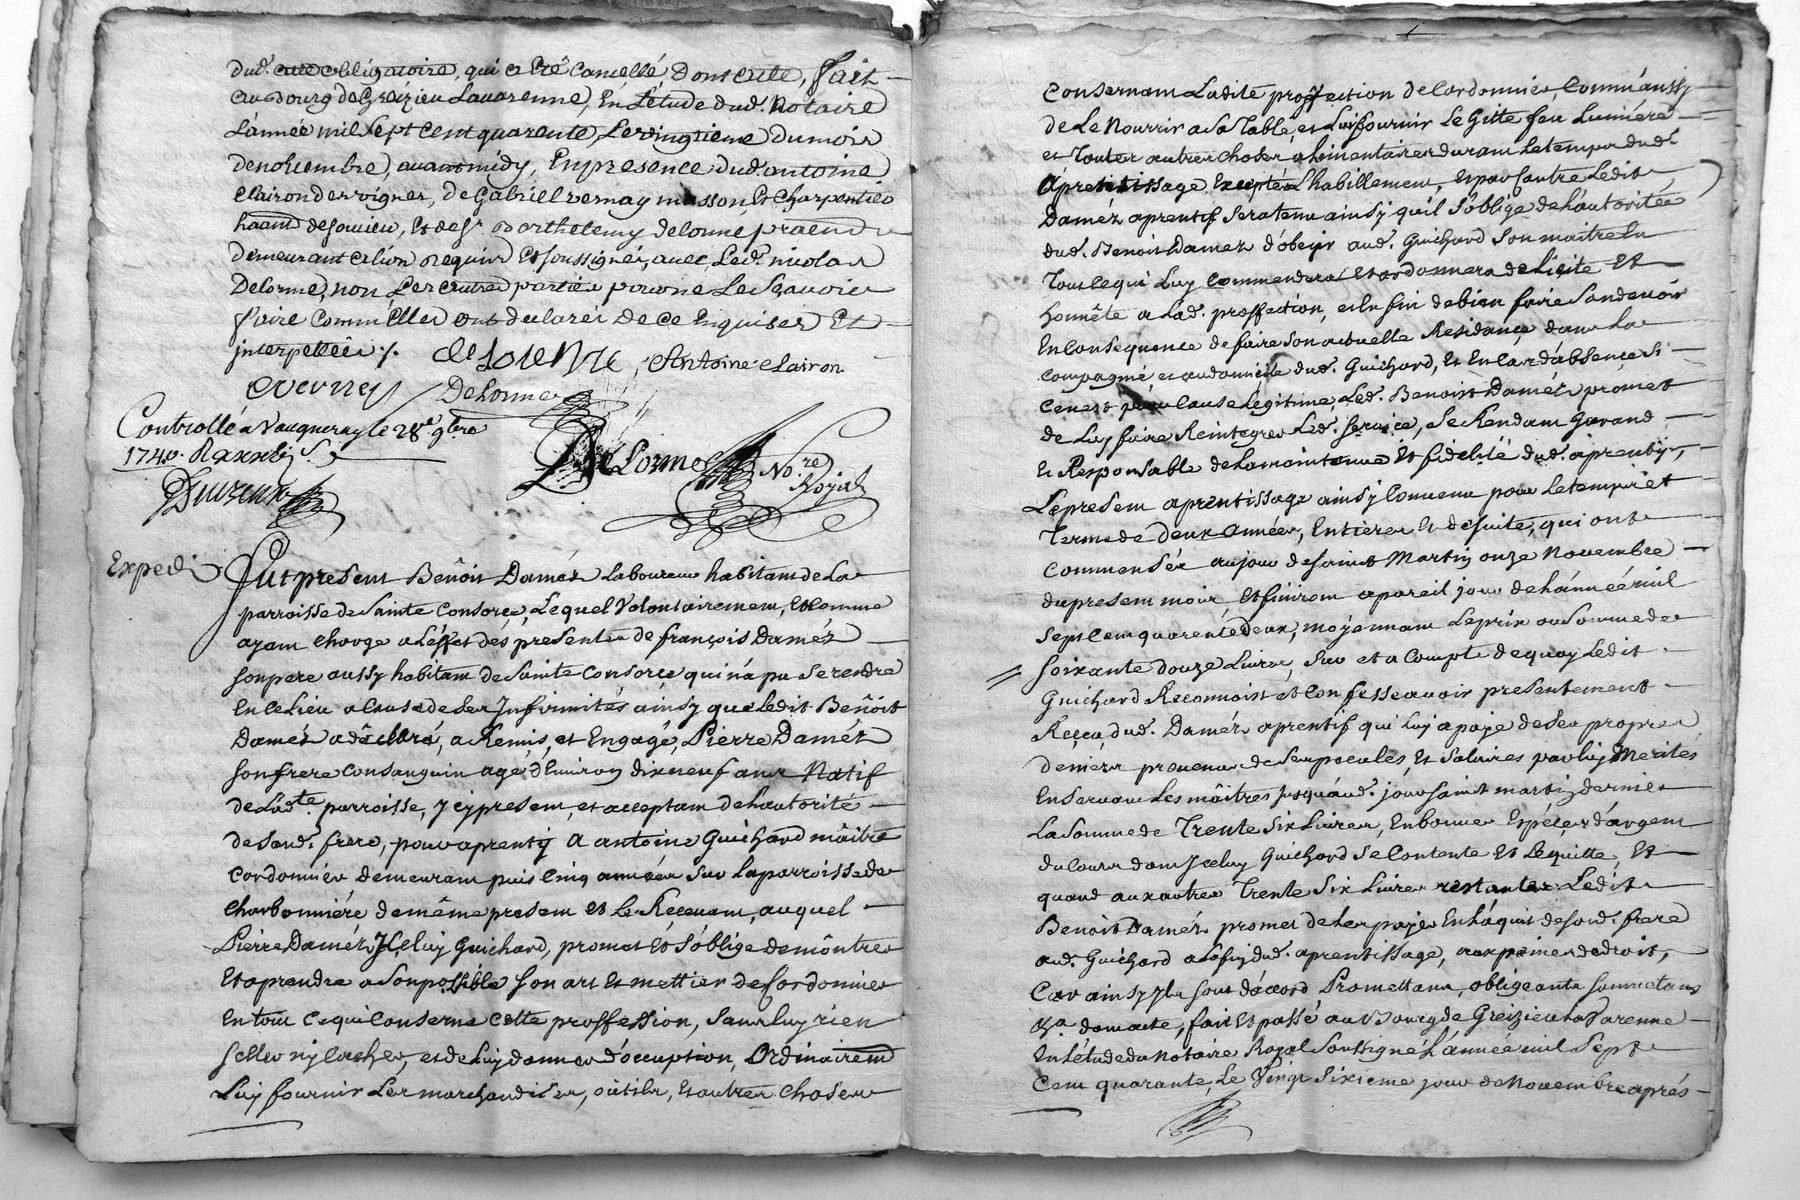 dud. obligatoire, qui a été Cancellé dont acte, fait
au bourg de Greizieu Lavarenne, En L'étude dud. Notaire
L'année mil Sept Cent quarante, Le vingtieme du mois
de novembre, avant midy, En presence dud. antoine
Clairon des vignes, de Gabriel vernay masson, Et Charpentier
habitt de souvieu, Et de sr barthelemy delorme
demeurant a lion requis Et soussignés, avec Led. nicolas
Delorme, non Les autres parties pour ne Le Sçavoir
faire Comm'Elles ont declarés De Ce Enquises Et
interpellées ./. delorme, Antoine Clairon
Verney Delorme
Controllé a Vaugneray le 28e 9bre
1740.
Delorme Nore Royal
Exped.
Fut present Benoit Daméz Laboureur habitant de La
parroisse de Sainte Consorce, Lequel Volontairement, Et Comme
ayant Charge a L'effet des presentes de françois Daméz
son pere aussy habitant de Sainte Consorce qui n'a pu se rendre
En ce Lieu a Cause de Ses Infirmités ainsy que Ledit Benoit
Daméz a déclaré, a Remis, et Engagé, Pierre Daméz
son frere Consanguin agé d'Environ dix neuf ans Natif
de Ladte parroisse, Icy present, et acceptant de L'autorité
de Sond. frere, pour aprentif A antoine Guichard maître
Cordonnier demeurant puis Cinq années Sur La parroisse de
Charbonniére de même present et Le Recevant, auquel
Pierre Daméz Iceluy Guichard, promet Et S'oblige de môntrer
Et aprendre a Son possible Son art Et mettier de Cordonnier
En tout Ce qui Conserne Cette proffession, Sans luy rien
Celler ny Cacher, et de Luy donner d'occuption, Ordinairemt
Luy fournir Les marchandises, outils, Et autres Choses
Consernant Ladite proffection de Cordonnier, Comm'aussy
de Le Nourrir a Sa Table, et Luy fournir Le Gitte feu Lumiére
et Toutes autres Choses alimentaires durant Le temps dudt
aprentissage Excepté L'habillement, Et par Contre Ledit
Daméz aprentif Sera tenu ainsy qu'il S'oblige de L'autorité
dud. Benoit Daméz d'obeyir aud. Guichard Son maître En
Tout Ce qui Luy Commendera Et ordonnera de Licite Et
honnête a Lad. proffection, et En fin de bien faire Son devoir
En Consequence de faire Son actuelle Residance dans La
Compagnie et au domicile dud. Guichard, Et En Cas d'absence Si
Ce n'est pour Cause Légitime, Led. Benoit Daméz promet
de Luy faire Reintegrer Led. Service, Se Rendant Garand
Et Responsable de La maintenue Et fidelité dud. aprentif,
Le present aprentissage ainsy Convenu pour Le temps et
Terme de deux Années, Entieres Et de suite, qui ont
Commensér au jour de Saint Martin onze Novembre
du present mois, Et finiront a pareil jour de L'année mil
Sept Cent quarente deux, moyennant Le prix ou Somme de
Soixante douze Livres, Sur et a Compte de quoy Ledit
Guichard Reconnoist et Confesse avoir presentement
Reçeu, dud. Daméz aprentif qui Luy a payé de Ses propres
deniers provenus de Ses pecules, Et Salaires par luy Merités
En Servant Les maîtres jusqu'aud. jour Saint martin dernier
La Somme de Trente Six Livres, En bonnes Espéces d'argent
du Cours dont Iceluy Guichard Se Contente Et Le quitte, Et
quand aux autres Trente Six Livres restantes Ledit
Benoit Daméz promet de Les payer En L'aquit de Sond. frere
aud. Guichard a La fin dud. aprentissage, aux peines de droit,
Car ainsy Ils Sont d'acord Promettant, obligeants Soumettans
dont acte, fait Et passé au Bourg de Greizieu La Varenne
En L'étude du Notaire Royal Soussigné L'année mil Sept
Cent quarante, Le Vingt Sixieme jour de Novembre aprés